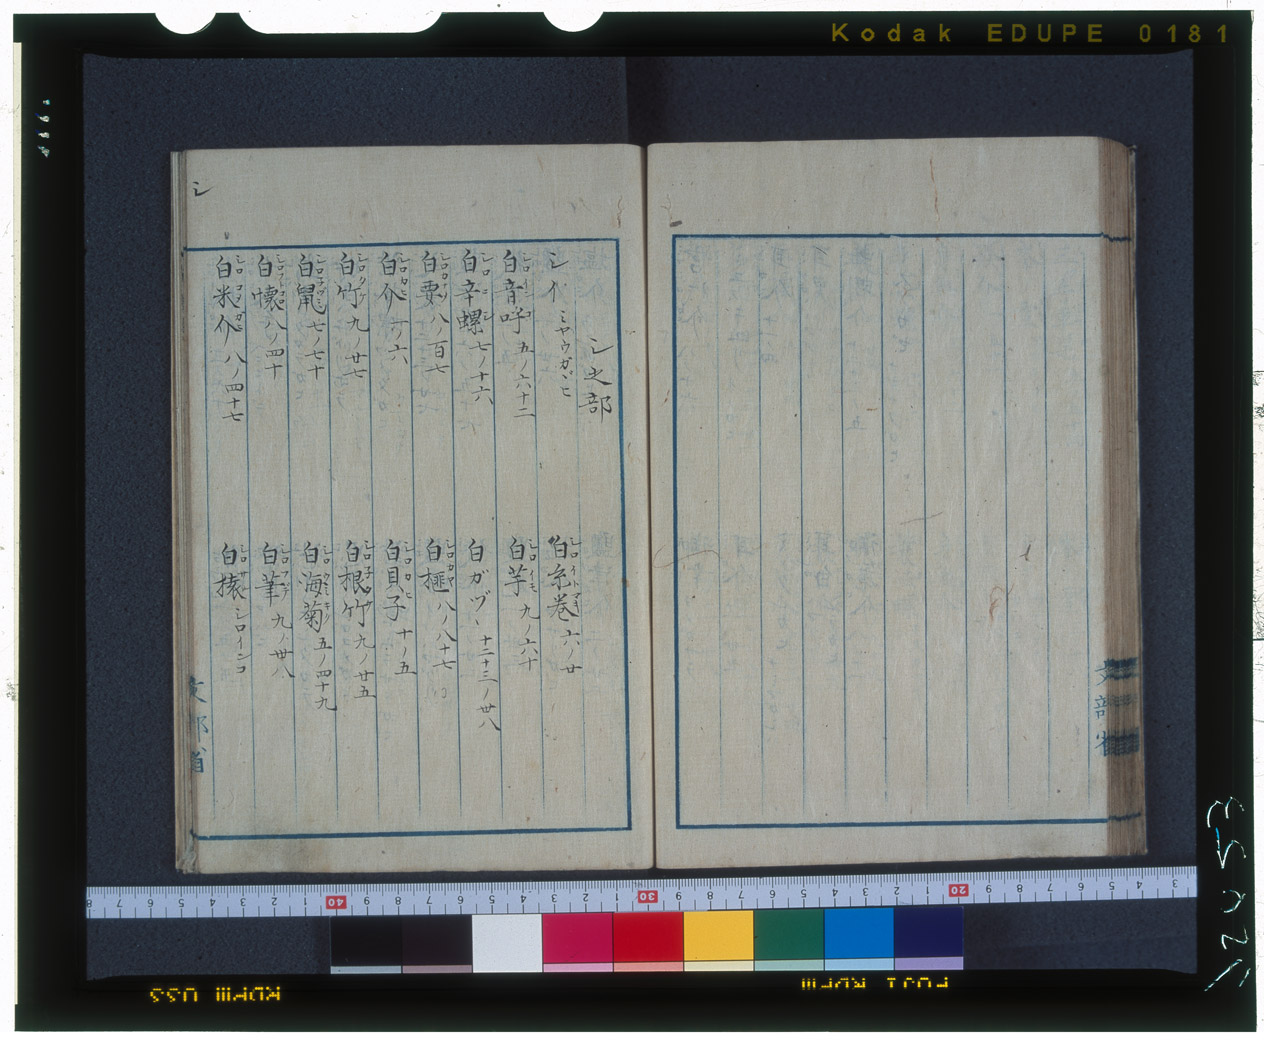 Kodak EDUPE 0181
シ之部
シイ ミヤウガシヒ
白音呼 五ノ六十二
白辛螺 七ノ十六
白要 八ノ百七
白介 一ノ六
白竹 九ノ廿七
白鼠 七ノ七十
白懐 八ノ四十
白米介 八ノ四十七
白糸巻 六ノ廿
白芋 九ノ六十
白ガヅヽ 十二十三ノ廿八
白榧 八ノ八十七
白貝子 十ノ五
白根竹 九ノ廿五
白海菊 五ノ四十九
白筆 九ノ廿八
白猿 シロインコ
シ
文部省
文部省
FUJI RDPIII
RDPIII USS